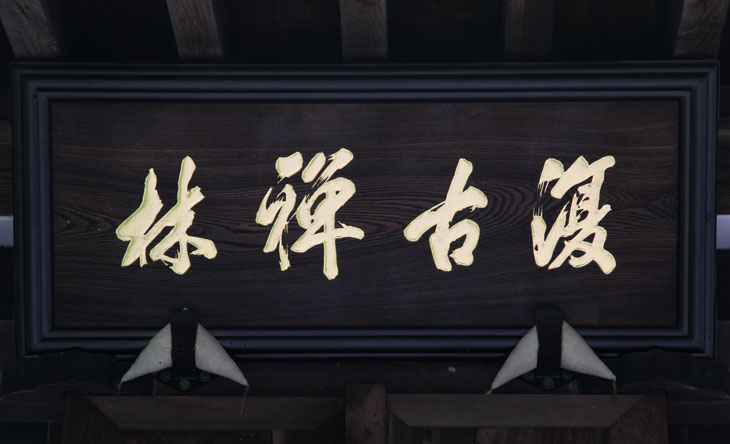 復古禅林